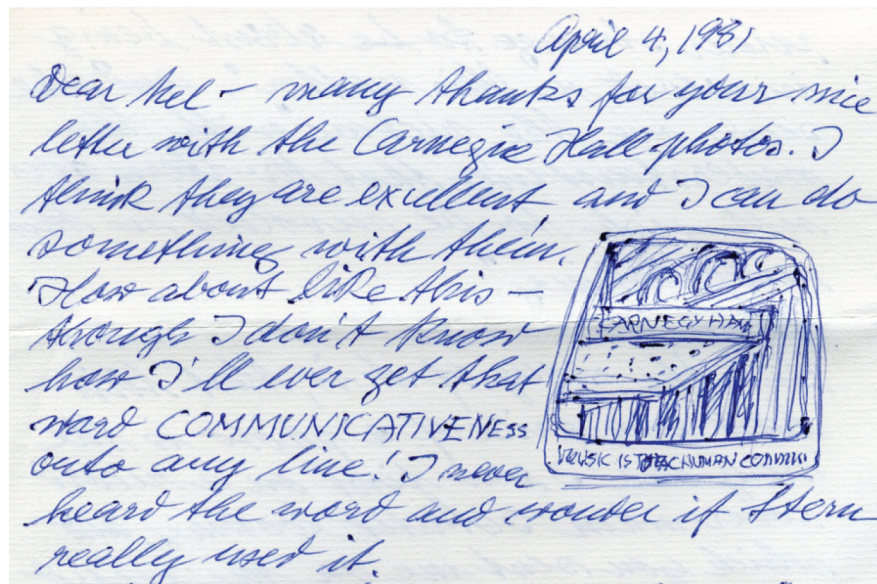 April 4, 1981
Dear Mel – many thanks for your nice
letter with the Carnegie Hall photos. I
think they are excellent and I can do
something with them.
How about like this –
though I don't know
how I'll ever get that
word COMMUNICATIVENESS
onto any line! I never
heard the word and wonder if Stern
really used it.
CARNEGY HALL
MUSIC IS HUMAN COMMUN